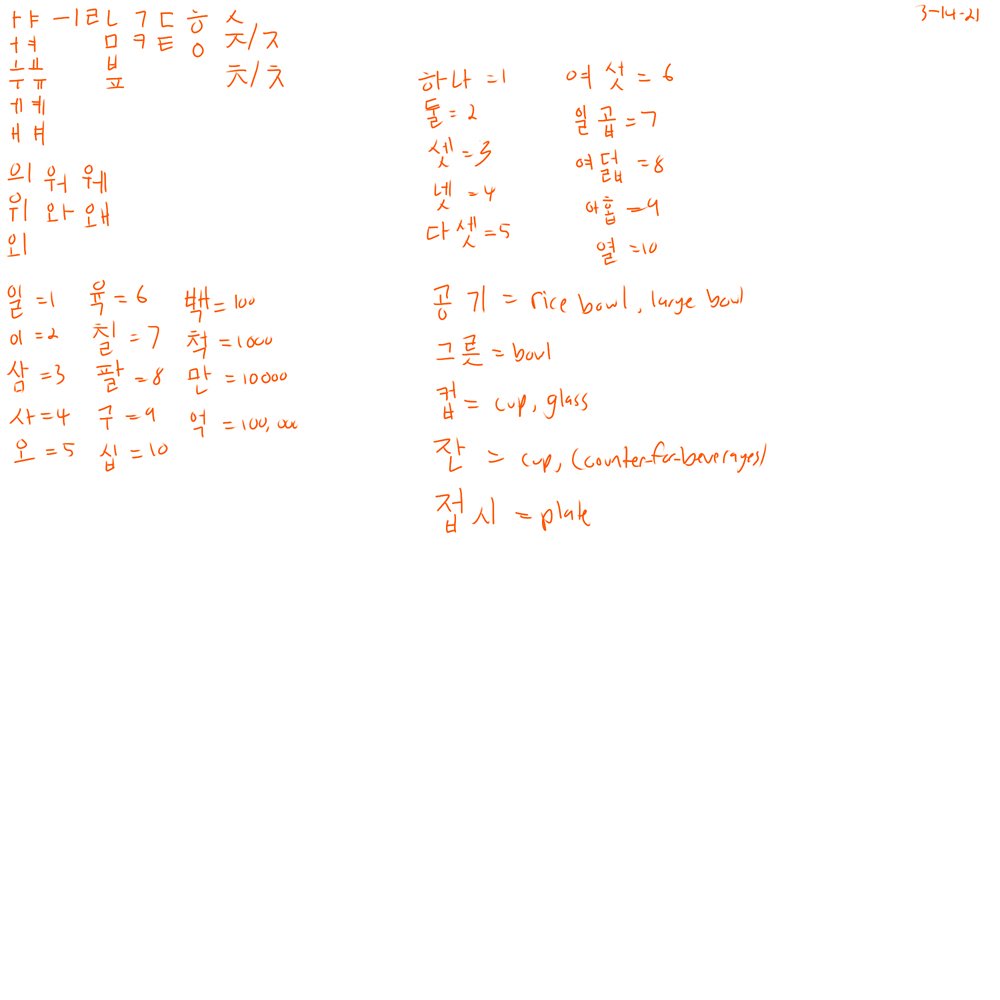 3-14-21
ㅏㅑ ㅡㅣㄹㄴ ㄱㄷㅎㅅ
ㅓㅕ ㅁㅋㅌㅇㅈ/ㅈ
ㅗㅛ ㅂ
ㅜㅠ ㅍ ㅊ/ㅊ
ㅔㅖ
ㅐㅒ
의 워 웨
위 와 왜
외
하나 = 1
둘 = 2
셋 = 3
넷 = 4
다셋 = 5
여섯 = 6
일곱 = 7
여덟 = 8
아홉 = 9
열 = 10
일 = 1
이 = 2
삼 = 3
사 = 4
오 = 5
육 = 6
칠 = 7
팔 = 8
구 = 9
십 = 10
백 = 100
척 = 1000
만 = 10000
억 = 100,000
공기 = rice bowl, large bowl
그릇 = bowl
컵 = cup, glass
잔 = cup, (counter-for-beverages)
접시 = plate